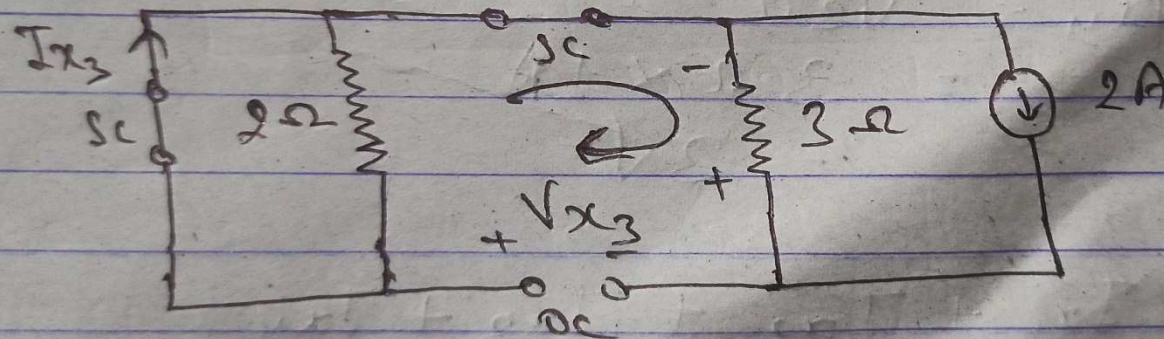 Ix3
SC
2Ω
SC
-
3Ω
+
2A
+ Vx3 -
OC